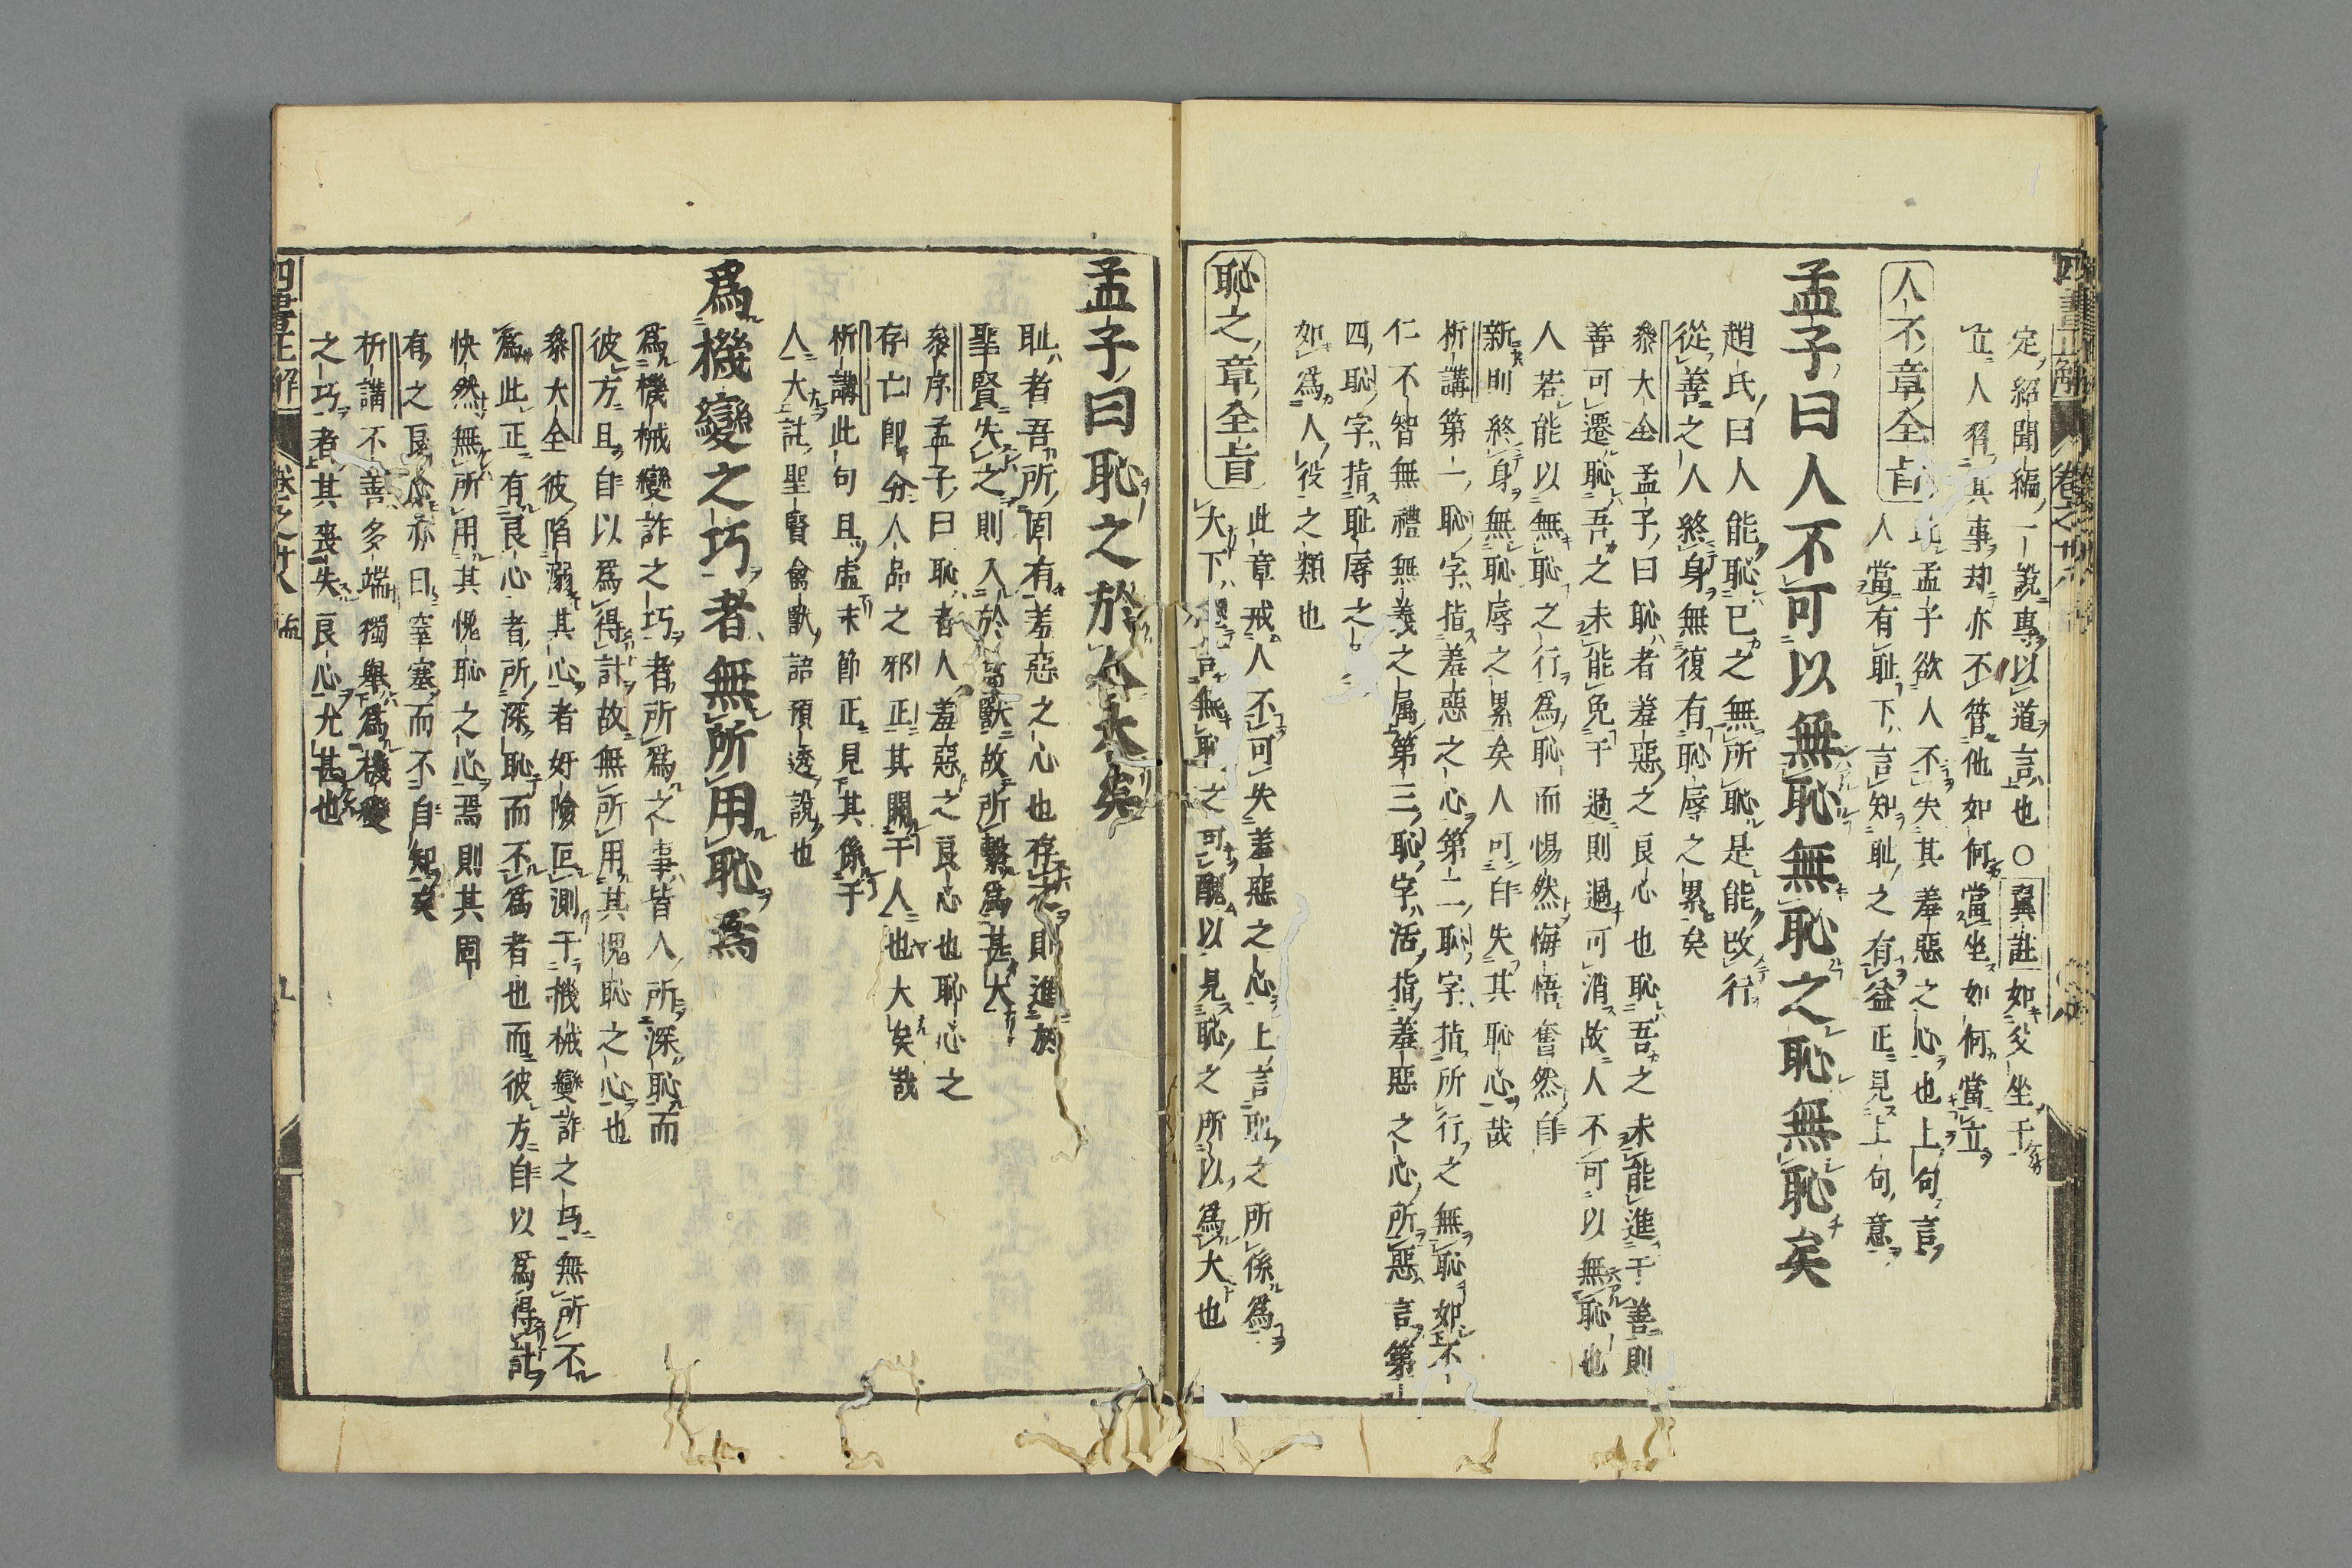 定紹聞編一說專以道言也○翼註如父坐于
立人有其事却亦不管他如何當坐如何當立
人不章全旨
孟子欲人不失其羞惡之心也上句言
人當有恥下言知恥之有益正見上句意
孟子曰人不可以無恥無恥之恥無恥矣
趙氏曰人能恥已之無所恥是能改行
從善之人終身無復有恥辱之累矣
叅大全孟子曰恥者羞惡之良心也恥吾之未能進于善則
善可遷恥吾之未能免于過則過可消故人不可以無恥也
人若能以無恥之行為恥而惕然悔悟奮然自
新則終身無恥辱之累矣人可自失其恥心哉
析講第一恥字指羞惡之心第二恥字指所行之無恥如不
仁不智無禮無義之属第三恥字活指羞惡之心所惡言第
四恥字指耻辱之
如為人役之類也
恥之章全旨
此章戒人不可失羞惡之心上言恥之所係為
大下言無恥之可醜以見恥之所以為大也
孟子曰恥之於人大矣
耻者吾所固有羞惡之心也存之則進於
聖賢失之則入於禽獸故所繫為甚大
叅序孟子曰恥者人羞惡之良心也恥心之
存亡卽分人品之邪正其關于人也大矣哉
析講此句且虛末節正見其係于
人大註聖賢禽獸語預透說也
為機變之巧者無所用恥焉
為機械變詐之巧者所為之事皆人所深恥而
彼方且自以為得計故無所用其愧恥之心也
叅大全彼陷溺其心者好險叵測于機械變詐之巧無所不
為此正有良心者所深恥而不為者也而彼方自以為得計
怏然無所用其愧恥之心焉則其固
有之良心亦日窒塞而不自知矣
析講不善多端獨舉為機變
之巧者其喪失良心尤甚也
四書正解
卷之廿八
九